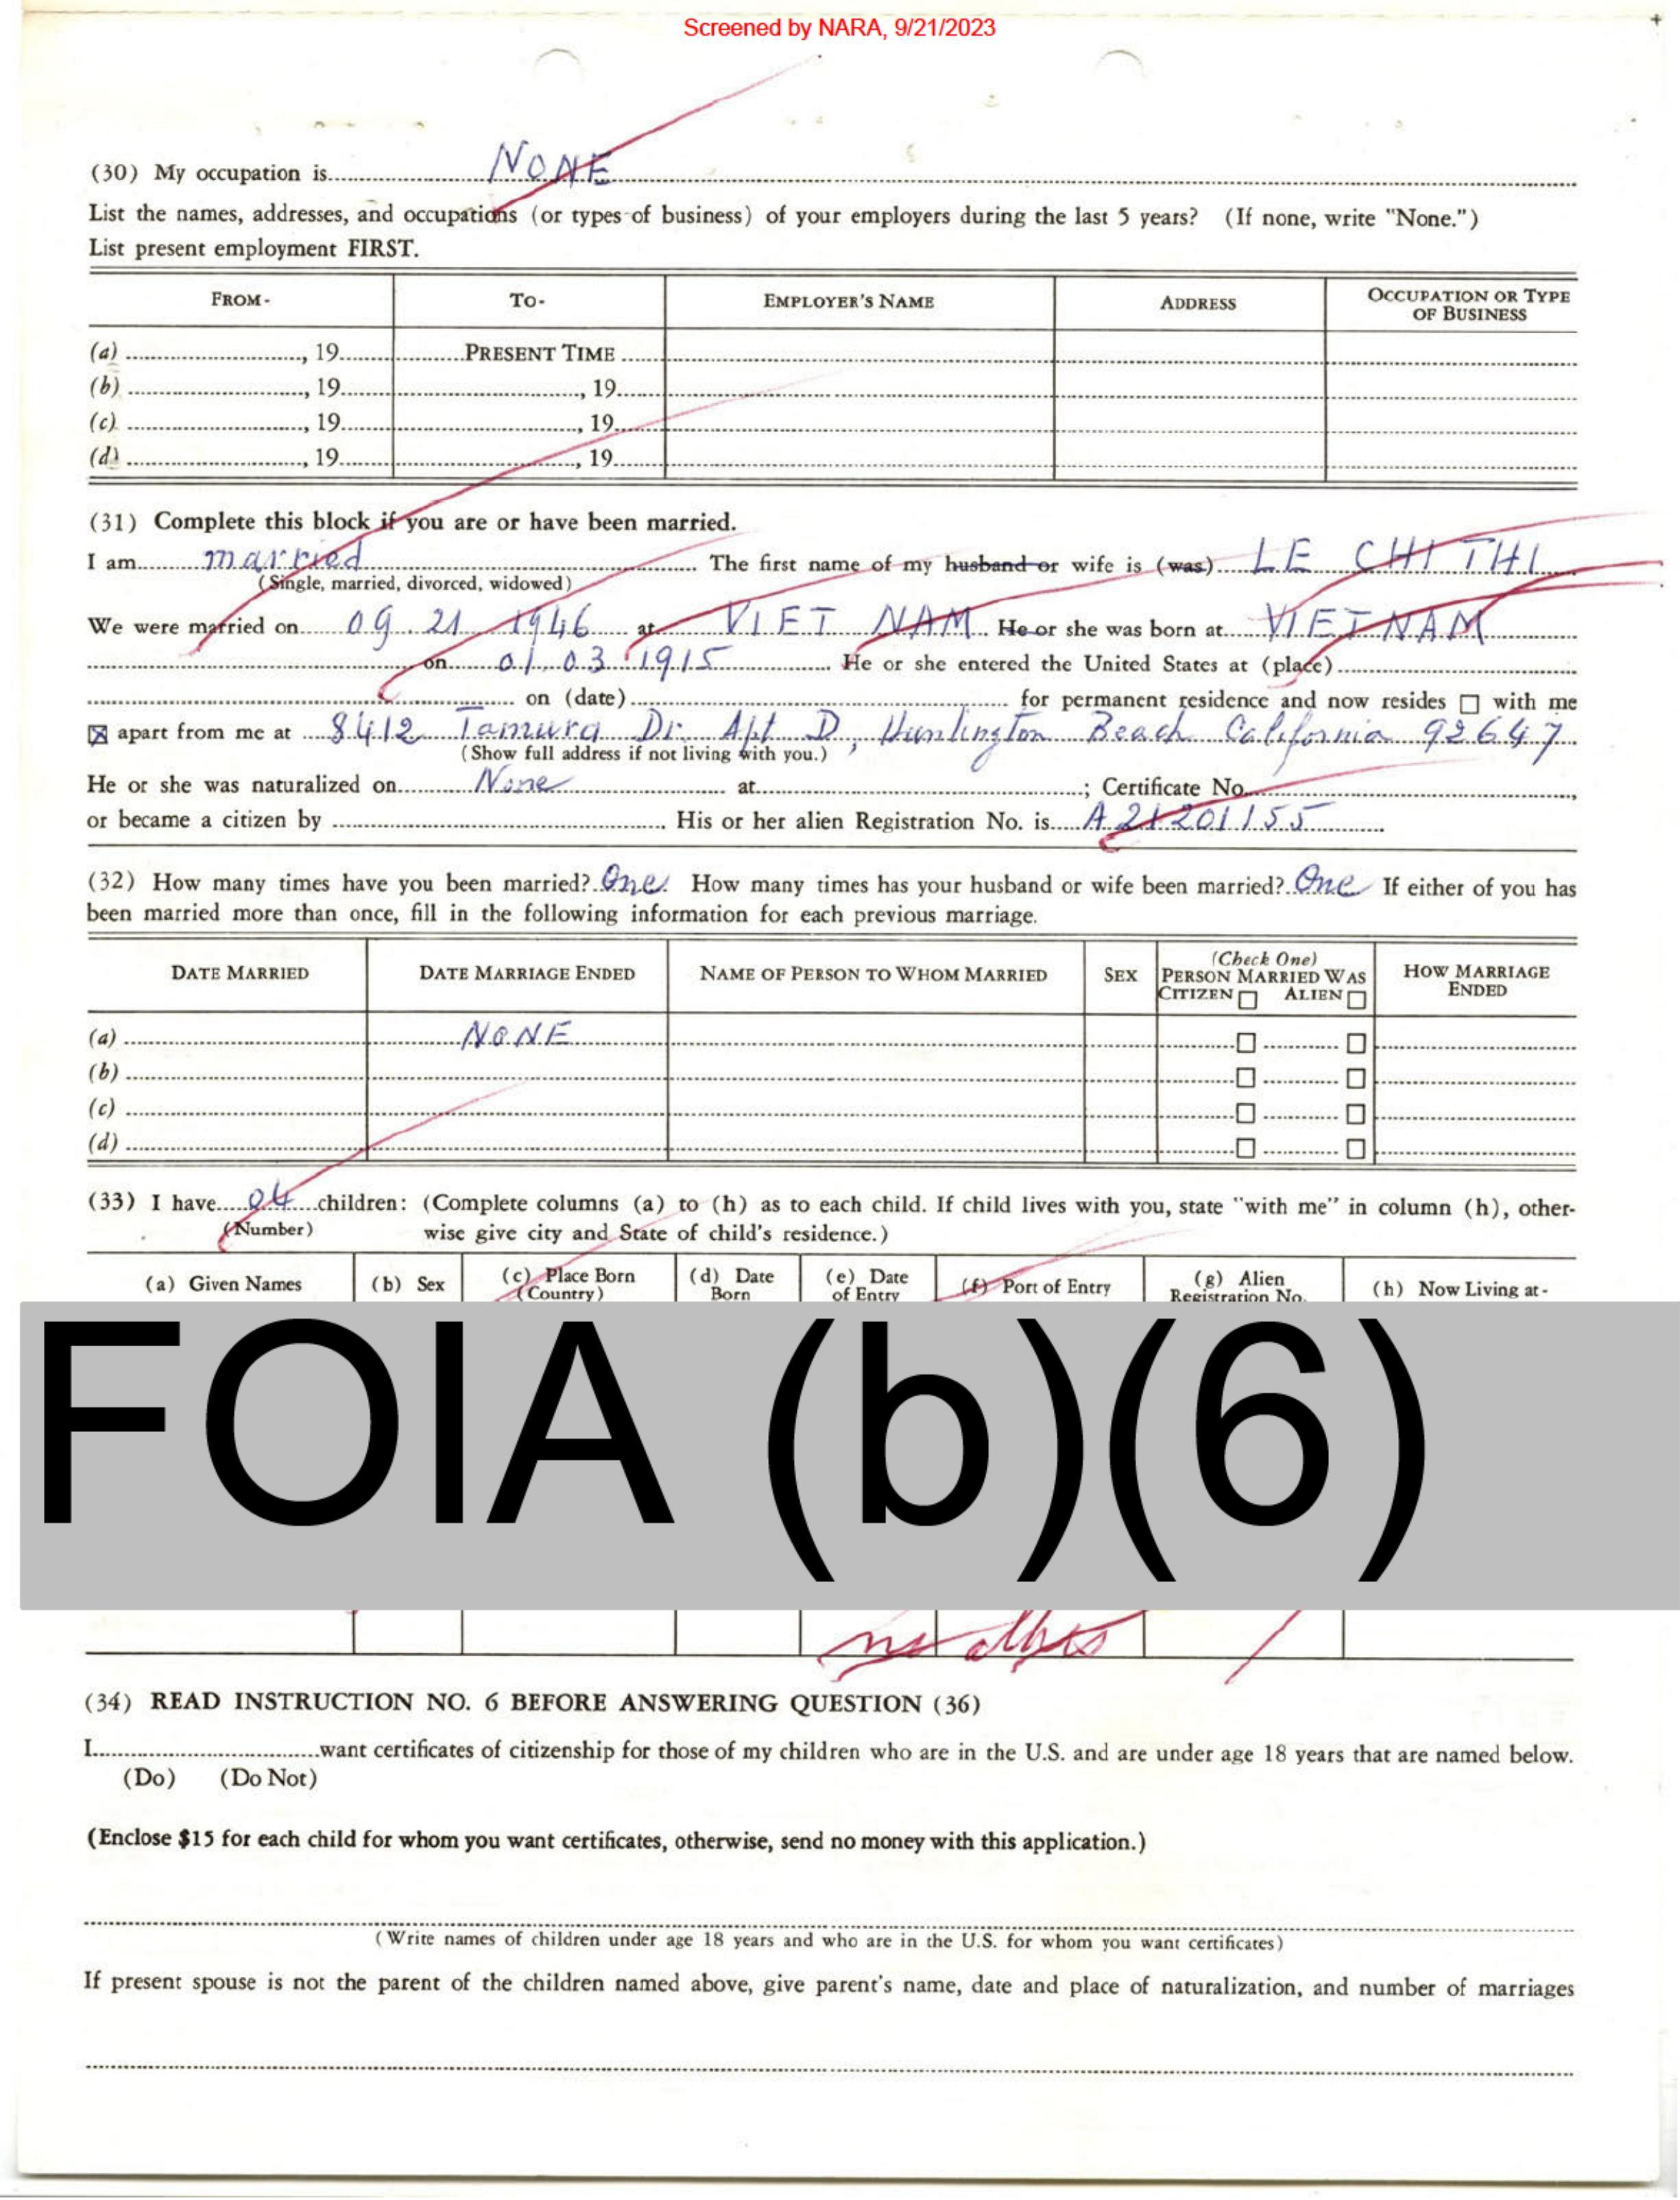 Screened by NARA, 9/21/2023
(30) My occupation is NONE
List the names, addresses, and occupations (or types of business) of your employers during the last 5 years? (If none, write "None.")
List present employment FIRST.
FROM- TO- EMPLOYER'S NAME ADDRESS OCCUPATION OR TYPE OF BUSINESS
(a) , 19 PRESENT TIME
(b) , 19 , 19
(c) , 19 , 19
(d) , 19 , 19
(31) Complete this block if you are or have been married.
I am married The first name of my husband or wife is (was) LE CHI THI
(Single, married, divorced, widowed)
We were married on 09.21 1946 at VIET NAM He or she was born at VIETNAM
on 01.03 1915 He or she entered the United States at (place)
on (date) for permanent residence and now resides ☐ with me
☒ apart from me at 8412 Tamura Dr. Apt D, Huntington Beach California 92647
(Show full address if not living with you.)
He or she was naturalized on None at ; Certificate No. ,
or became a citizen by . His or her alien Registration No. is A 21 201 155
(32) How many times have you been married? One. How many times has your husband or wife been married? One If either of you has
been married more than once, fill in the following information for each previous marriage.
DATE MARRIED DATE MARRIAGE ENDED NAME OF PERSON TO WHOM MARRIED SEX (Check One) PERSON MARRIED WAS CITIZEN ☐ ALIEN ☐ HOW MARRIAGE ENDED
(a) NONE ☐ ☐
(b) ☐ ☐
(c) ☐ ☐
(d) ☐ ☐
(33) I have 04 children: (Complete columns (a) to (h) as to each child. If child lives with you, state "with me" in column (h), other-
(Number) wise give city and State of child's residence.)
(a) Given Names (b) Sex (c) Place Born (Country) (d) Date Born (e) Date of Entry (f) Port of Entry (g) Alien Registration No. (h) Now Living at-
FOIA (b)(6)
no
(34) READ INSTRUCTION NO. 6 BEFORE ANSWERING QUESTION (36)
I want certificates of citizenship for those of my children who are in the U.S. and are under age 18 years that are named below.
(Do) (Do Not)
(Enclose $15 for each child for whom you want certificates, otherwise, send no money with this application.)
(Write names of children under age 18 years and who are in the U.S. for whom you want certificates)
If present spouse is not the parent of the children named above, give parent's name, date and place of naturalization, and number of marriages